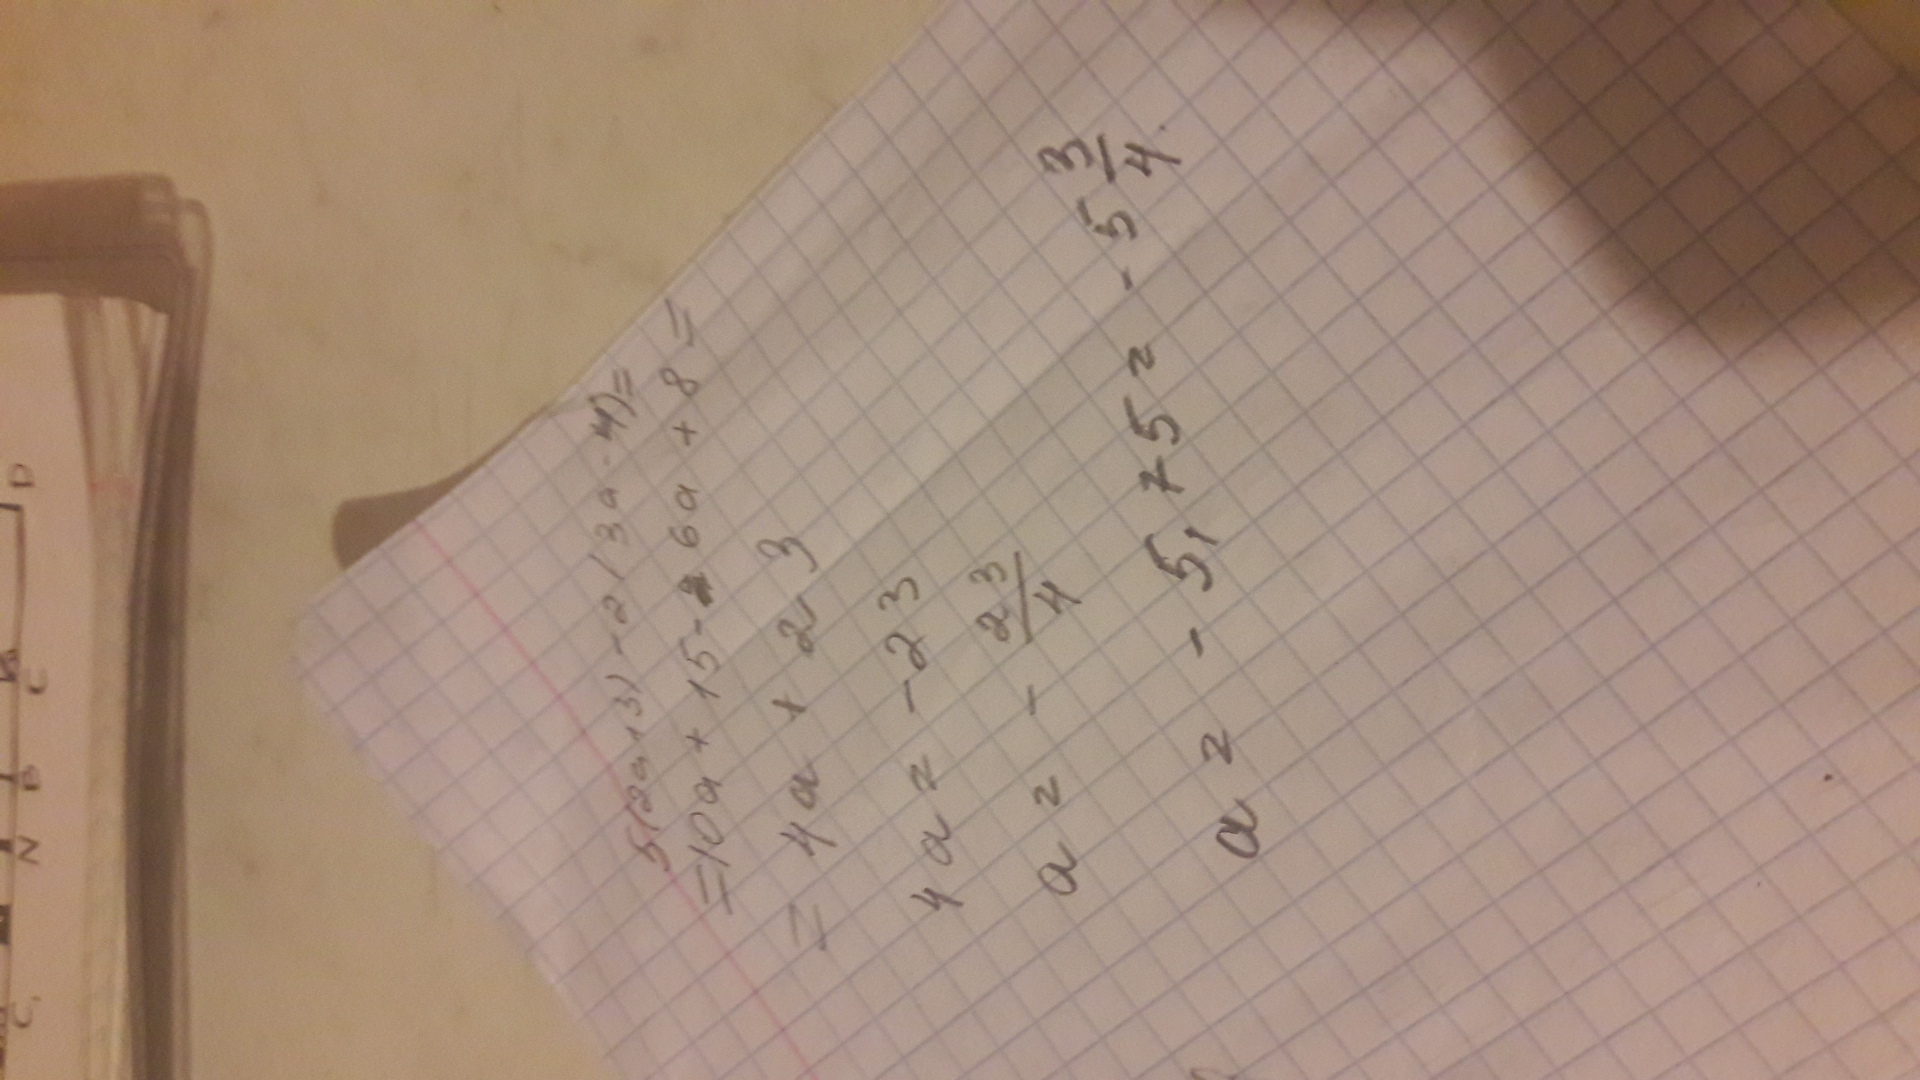 5(2a+3)-2(3a-4)=
=10a+15-6a+8=
=4a+23
4a=-23
a=-23/4
a=-5,75=-5 3/4.
D
C
B
N
C,